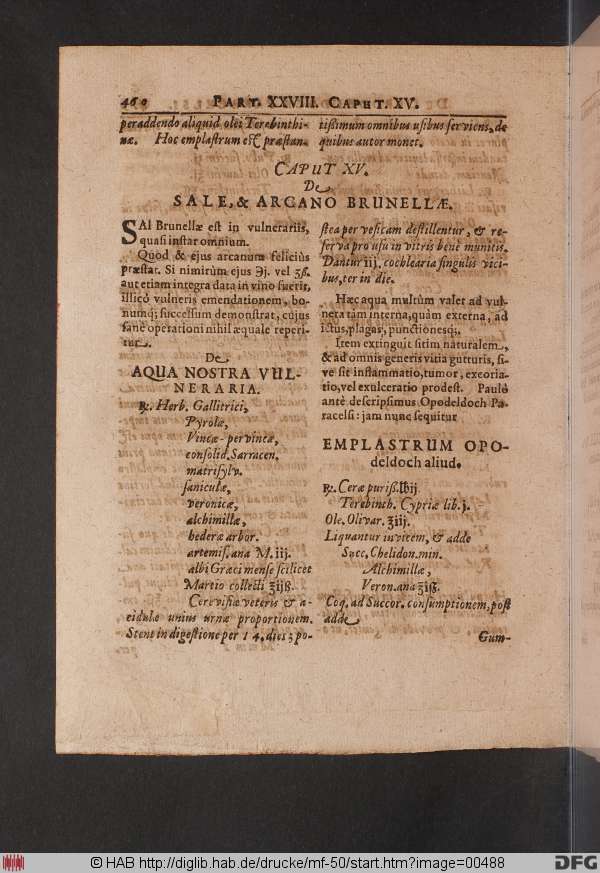 460 PART. XXVIII. CAPUT. XV.
peraddendo aliquid olei Terebinthi-
næ. Hoc emplastrum est præstan-
tißimum omnibus usibus serviens, de
quibus autor monet.
CAPUT XV.
De
SALE, & ARCANO BRUNELLÆ.
SAl Brunellæ est in vulnerariis,
quasi instar omnium.
Quod & ejus arcanum feliciùs
præstat. Si nimirùm ejus ℈j. vel ʒß.
aut etiam integra data in vino fuerit,
illicò vulneris emendationem, bo-
numq; successum demonstrat, cujus
sanè operationi nihil æquale reperi-
tur.
De
AQUA NOSTRA VUL-
NERARIA.
℞. Herb. Gallitrici,
Pyrolæ,
Vincæ-pervincæ,
consolid. Sarracen.
matrisylv.
saniculæ,
veronicæ,
alchimillæ,
hederæ arbor.
artemis. ana M. iij.
albi Græci mense scilicet
Martio collecti ʒijß.
Cerevisiæ veteris & a-
cidulæ unius urnæ proportionem.
Stent in digestione per 14. dies; po-
stea per vesicam destillentur, & re-
serva pro usu in vitris benè munitis.
Dantur iij. cochlearia singulis vici-
bus, ter in die.
Hæc aqua multùm valet ad vul-
nera tàm interna, quàm externa, ad
ictus, plagas, punctionesq;.
Item extinguit sitim naturalem,
& ad omnis generis vitia gutturis, si-
ve sit inflammatio, tumor, excoria-
tio, vel exulceratio prodest. Paulò
antè descripsimus Opodeldoch Pa-
racelsi: jam nunc sequitur
EMPLASTRUM OPO-
deldoch aliud.
℞. Ceræ puriß. ℔ij
Terebinth. Cypriæ lib. j.
Ole. Olivar. ʒiij.
Liquantur invicem, & adde
Succ. Chelidon. min.
Alchimillæ,
Veron. ana ʒiß.
Coq. ad Succor. consumptionem, post
adde
Gum-
© HAB http://diglib.hab.de/drucke/mf-50/start.htm?image=00488
DFG